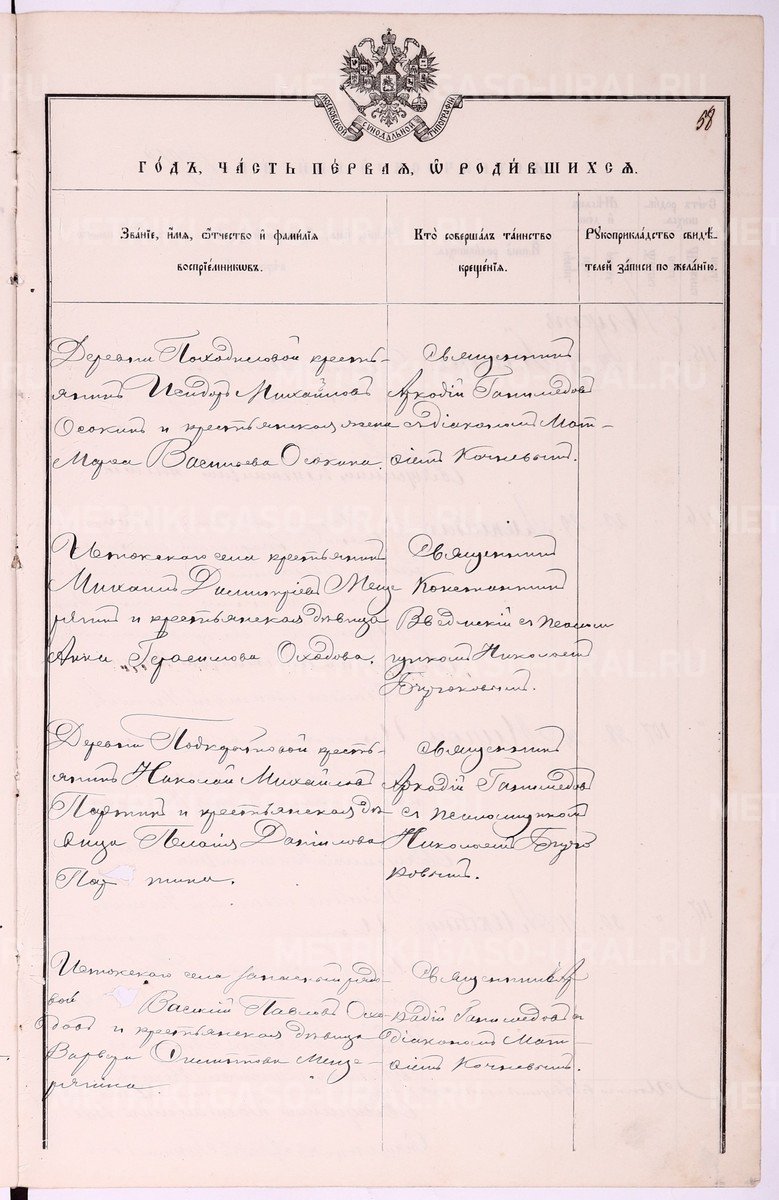 МОСКОВСКОЙ СѴНОДАЛЬНОЙ ТИПОГРАФІИ
58
ГО́ДЪ, ЧА́СТЬ ПЕ́РВАЯ, Ѿ РОДИ́ВШИХСЯ.
Зва́нїе, и́мя, ѻ́тчество и҆ фами́лїя
воспрїе́мникѡвъ.
Кто̀ соверша́лъ та́инство
креще́нїя.
Рꙋкоприкла́дство свидѣ-
телей за́писи по жела́нїю.
Деревни Походиловой кресть-
янинъ Исидоръ Михайловъ
Осокинъ и крестьянская жена
Марѳа Васильева Осокина.
Священникъ
Аркадій Ганимедовъ
съ діакономъ Мат-
ѳіемъ Кочневымъ.
Истокскаго села крестьянинъ
Михаилъ Димитріевъ Меще
рягинъ и крестьянская дѣвица
Анна Герасимова Оходова.
Священникъ
Константинъ
Введенскій съ псалом
щикомъ Николаемъ
Бирюковымъ.
Деревни кресть-
янинъ Николай Михайловъ
Паргинъ и крестьянская дѣ
вица Пелагія Даніилова
Пар гина.
Священникъ
Аркадій Ганимедовъ
съ псаломщикомъ
Николаемъ Бирю
ковымъ.
Истокскаго села запасный рядо
вой Василій Павловъ Охо
довъ и крестьянская дѣвица
Варвара Филиппова Меще-
рягина.
Священникъ Ар
кадій Ганимедовъ съ
діакономъ Мат-
ѳіемъ Кочневымъ.
METRIKI.GASO-URAL.RU